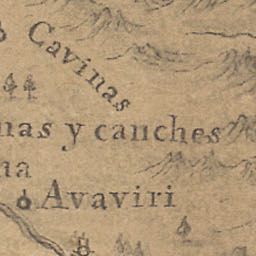 Cavinas
nas y canches
na
Avaviri